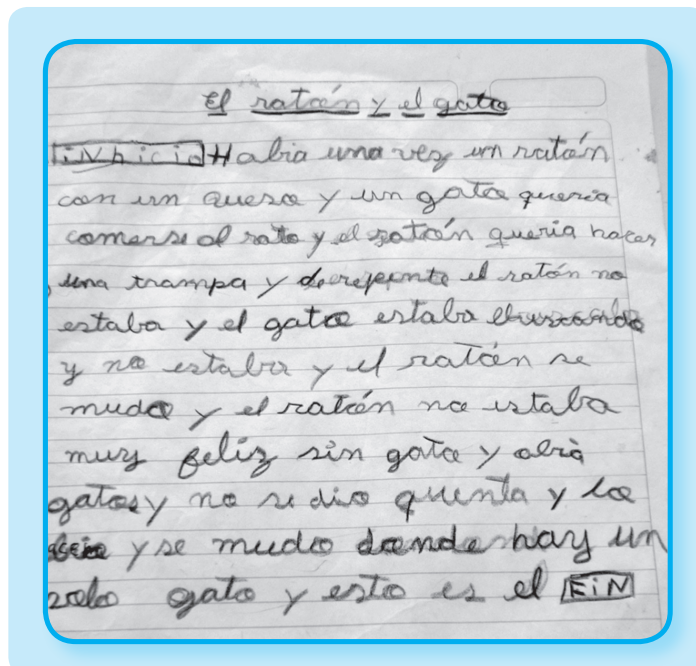 El ratón y el gato
iNhicio Habia una vez un ratón
con un queso y un gato queria
comerse al rato y el ratón queria hacer
una trampa y derepente el ratón no
estaba y el gato estaba
y no estaba y el ratón se
mudo y el ratón no estaba
muy feliz sin gato y abia
gatos y no se dio quenta y lo
y se mudo donde hay un
solo gato y esto es el FiN